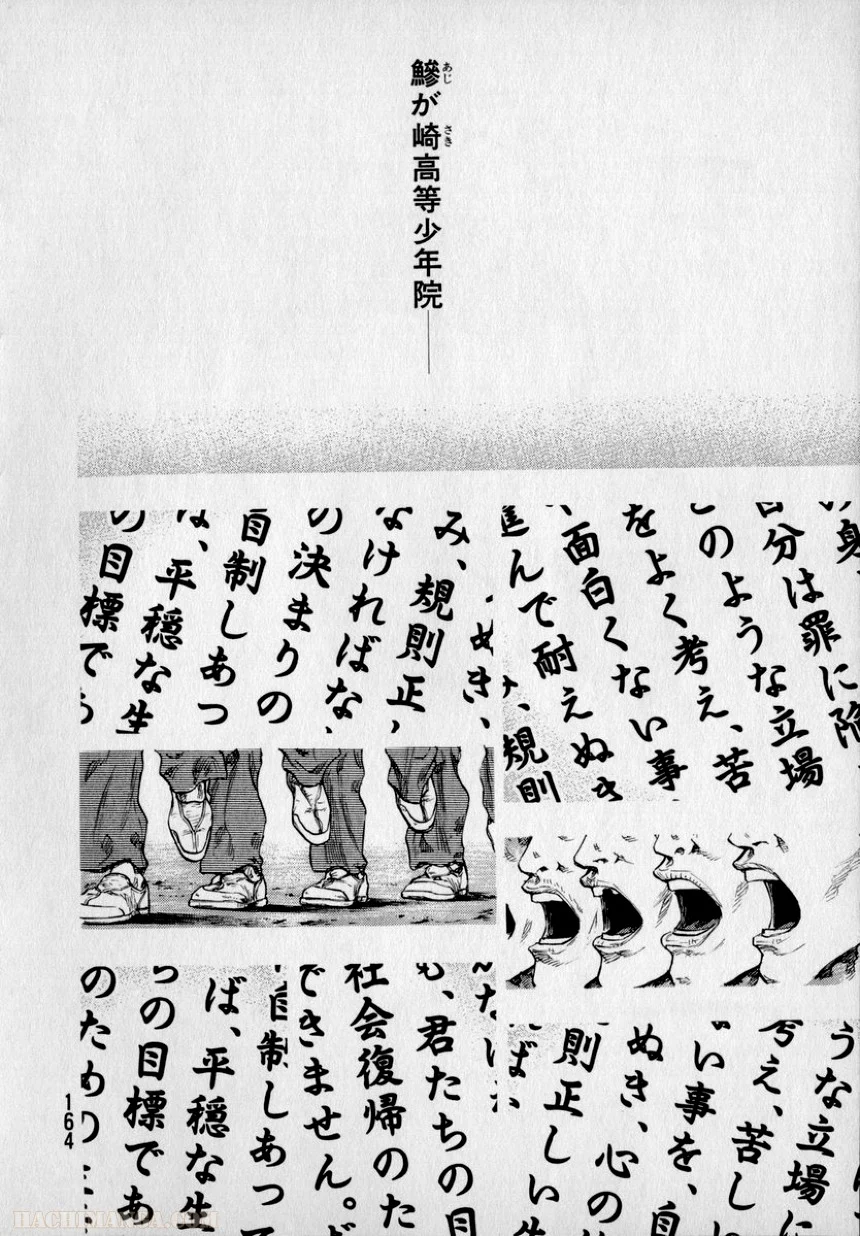 鰺が崎高等少年院――
あじ
さき
の身
自分は罪に陥
このような立場
をよく考え、苦
、面白くない事
進んで耐えぬき
み、規則
ぬき、
み、規則正し
なければなら
の決まりの
自制しあっ
ば、平穏な生
の目標であ
うな立場に
考え、苦しい
い事を、自
ぬき、心の
則正しい生
ればな
なければ
も、君たちの目
社会復帰のた
できません。
自制しあって
ば、平穏な生
ちの目標であ
のための
164
HACHIMANGA.COM